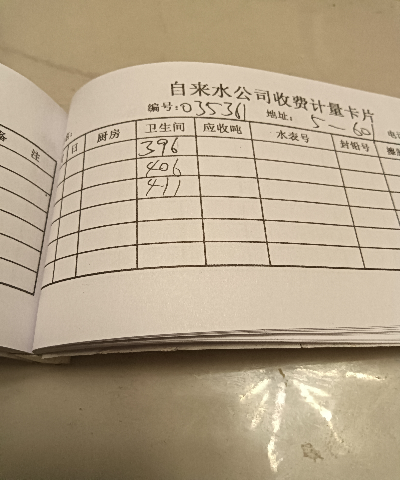 自来水公司收费计量卡片
编号:035361 地址: 5-601
日 厨房 卫生间 应收吨 水表号 封铅号
396
406
411
备注